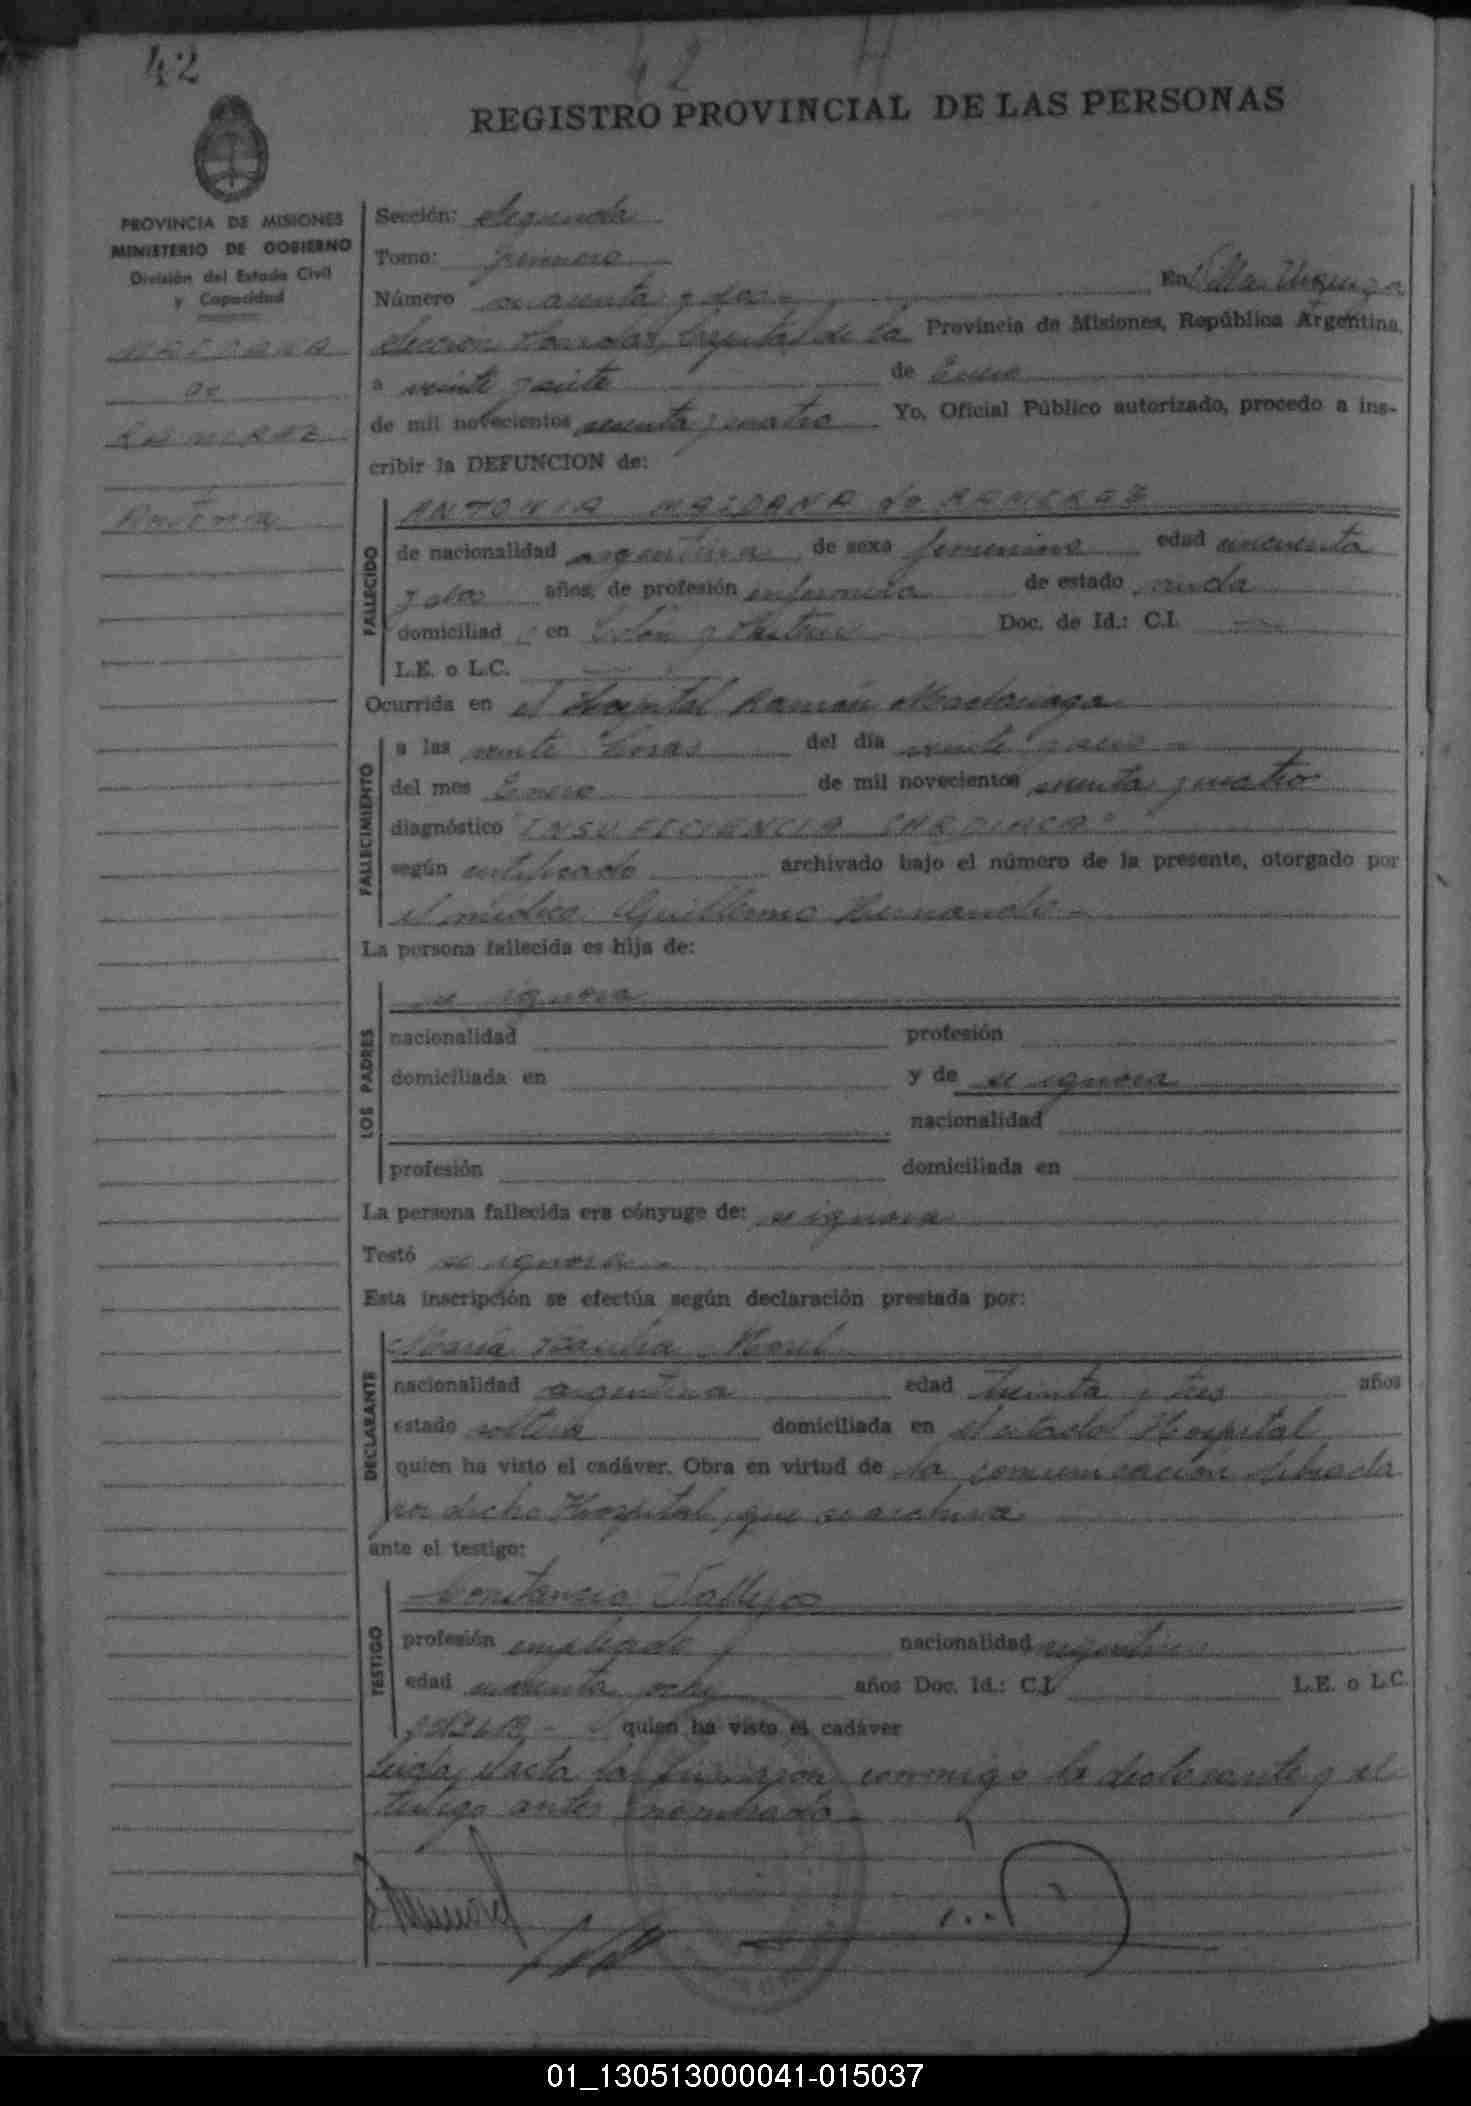 42
42
REGISTRO PROVINCIAL DE LAS PERSONAS
PROVINCIA DE MISIONES
MINISTERIO DE GOBIERNO
División del Estado Civil
y Capacidad
MALDANA
de
RAMIREZ
Antonia
Sección: Segunda
Tomo: primero
Número cuarenta y dos
En Villa Urquiza
Sección Capital de la Provincia de Misiones, República Argentina,
a veinte y siete de Enero
de mil novecientos sesenta y cuatro Yo, Oficial Público autorizado, procedo a ins-
cribir la DEFUNCION de:
FALLECIDO
ANTONIA MALDANA de RAMIREZ
de nacionalidad argentina de sexo femenino edad cincuenta
y dos años, de profesión enfermera de estado viuda
domiciliad en Colón y Doc. de Id.: C.I.
L.E. o L.C.
Ocurrida en el Hospital Ramón Madariaga
FALLECIMIENTO
a las veinte horas del día veinte y
del mes Enero de mil novecientos sesenta y cuatro
diagnóstico "INSUFICIENCIA CARDIACA"
según certificado archivado bajo el número de la presente, otorgado por
el médico Guillermo
La persona fallecida es hija de:
LOS PADRES
se ignora
nacionalidad profesión
domiciliada en y de se ignora
nacionalidad
profesión domiciliada en
La persona fallecida era cónyuge de: se ignora
Testó se ignora
Esta inscripción se efectúa según declaración prestada por:
DECLARANTE
María
nacionalidad argentina edad treinta y tres años
estado soltera domiciliada en el citado Hospital
quien ha visto el cadáver. Obra en virtud de la comunicación librada
por dicho Hospital, que se archiva
ante el testigo:
TESTIGO
Constancio Vallejos
profesión empleado nacionalidad argentino
edad cuarenta y ocho años Doc. Id.: C.I. L.E. o L.C.
quien ha visto el cadáver
Leida el acta la firmaron conmigo la declarante y el
testigo antes nombrado
01_130513000041-015037